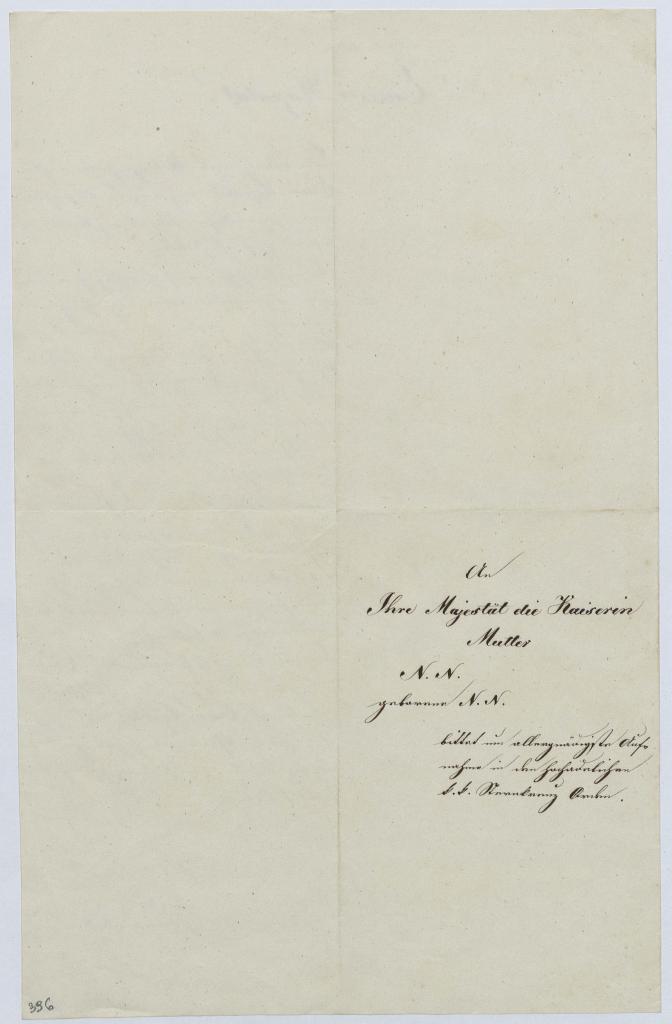 An
Ihre Majestät die Kaiserin
Mutter
N. N.
geborene N. N.
bittet um allergnädigste Auf-
nahme in den hochadelichen
k. k. Sternkreuz Orden.
396